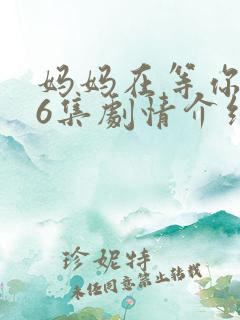 妈妈在等你
6集劇情介
珍妮特
未经同意禁止转载